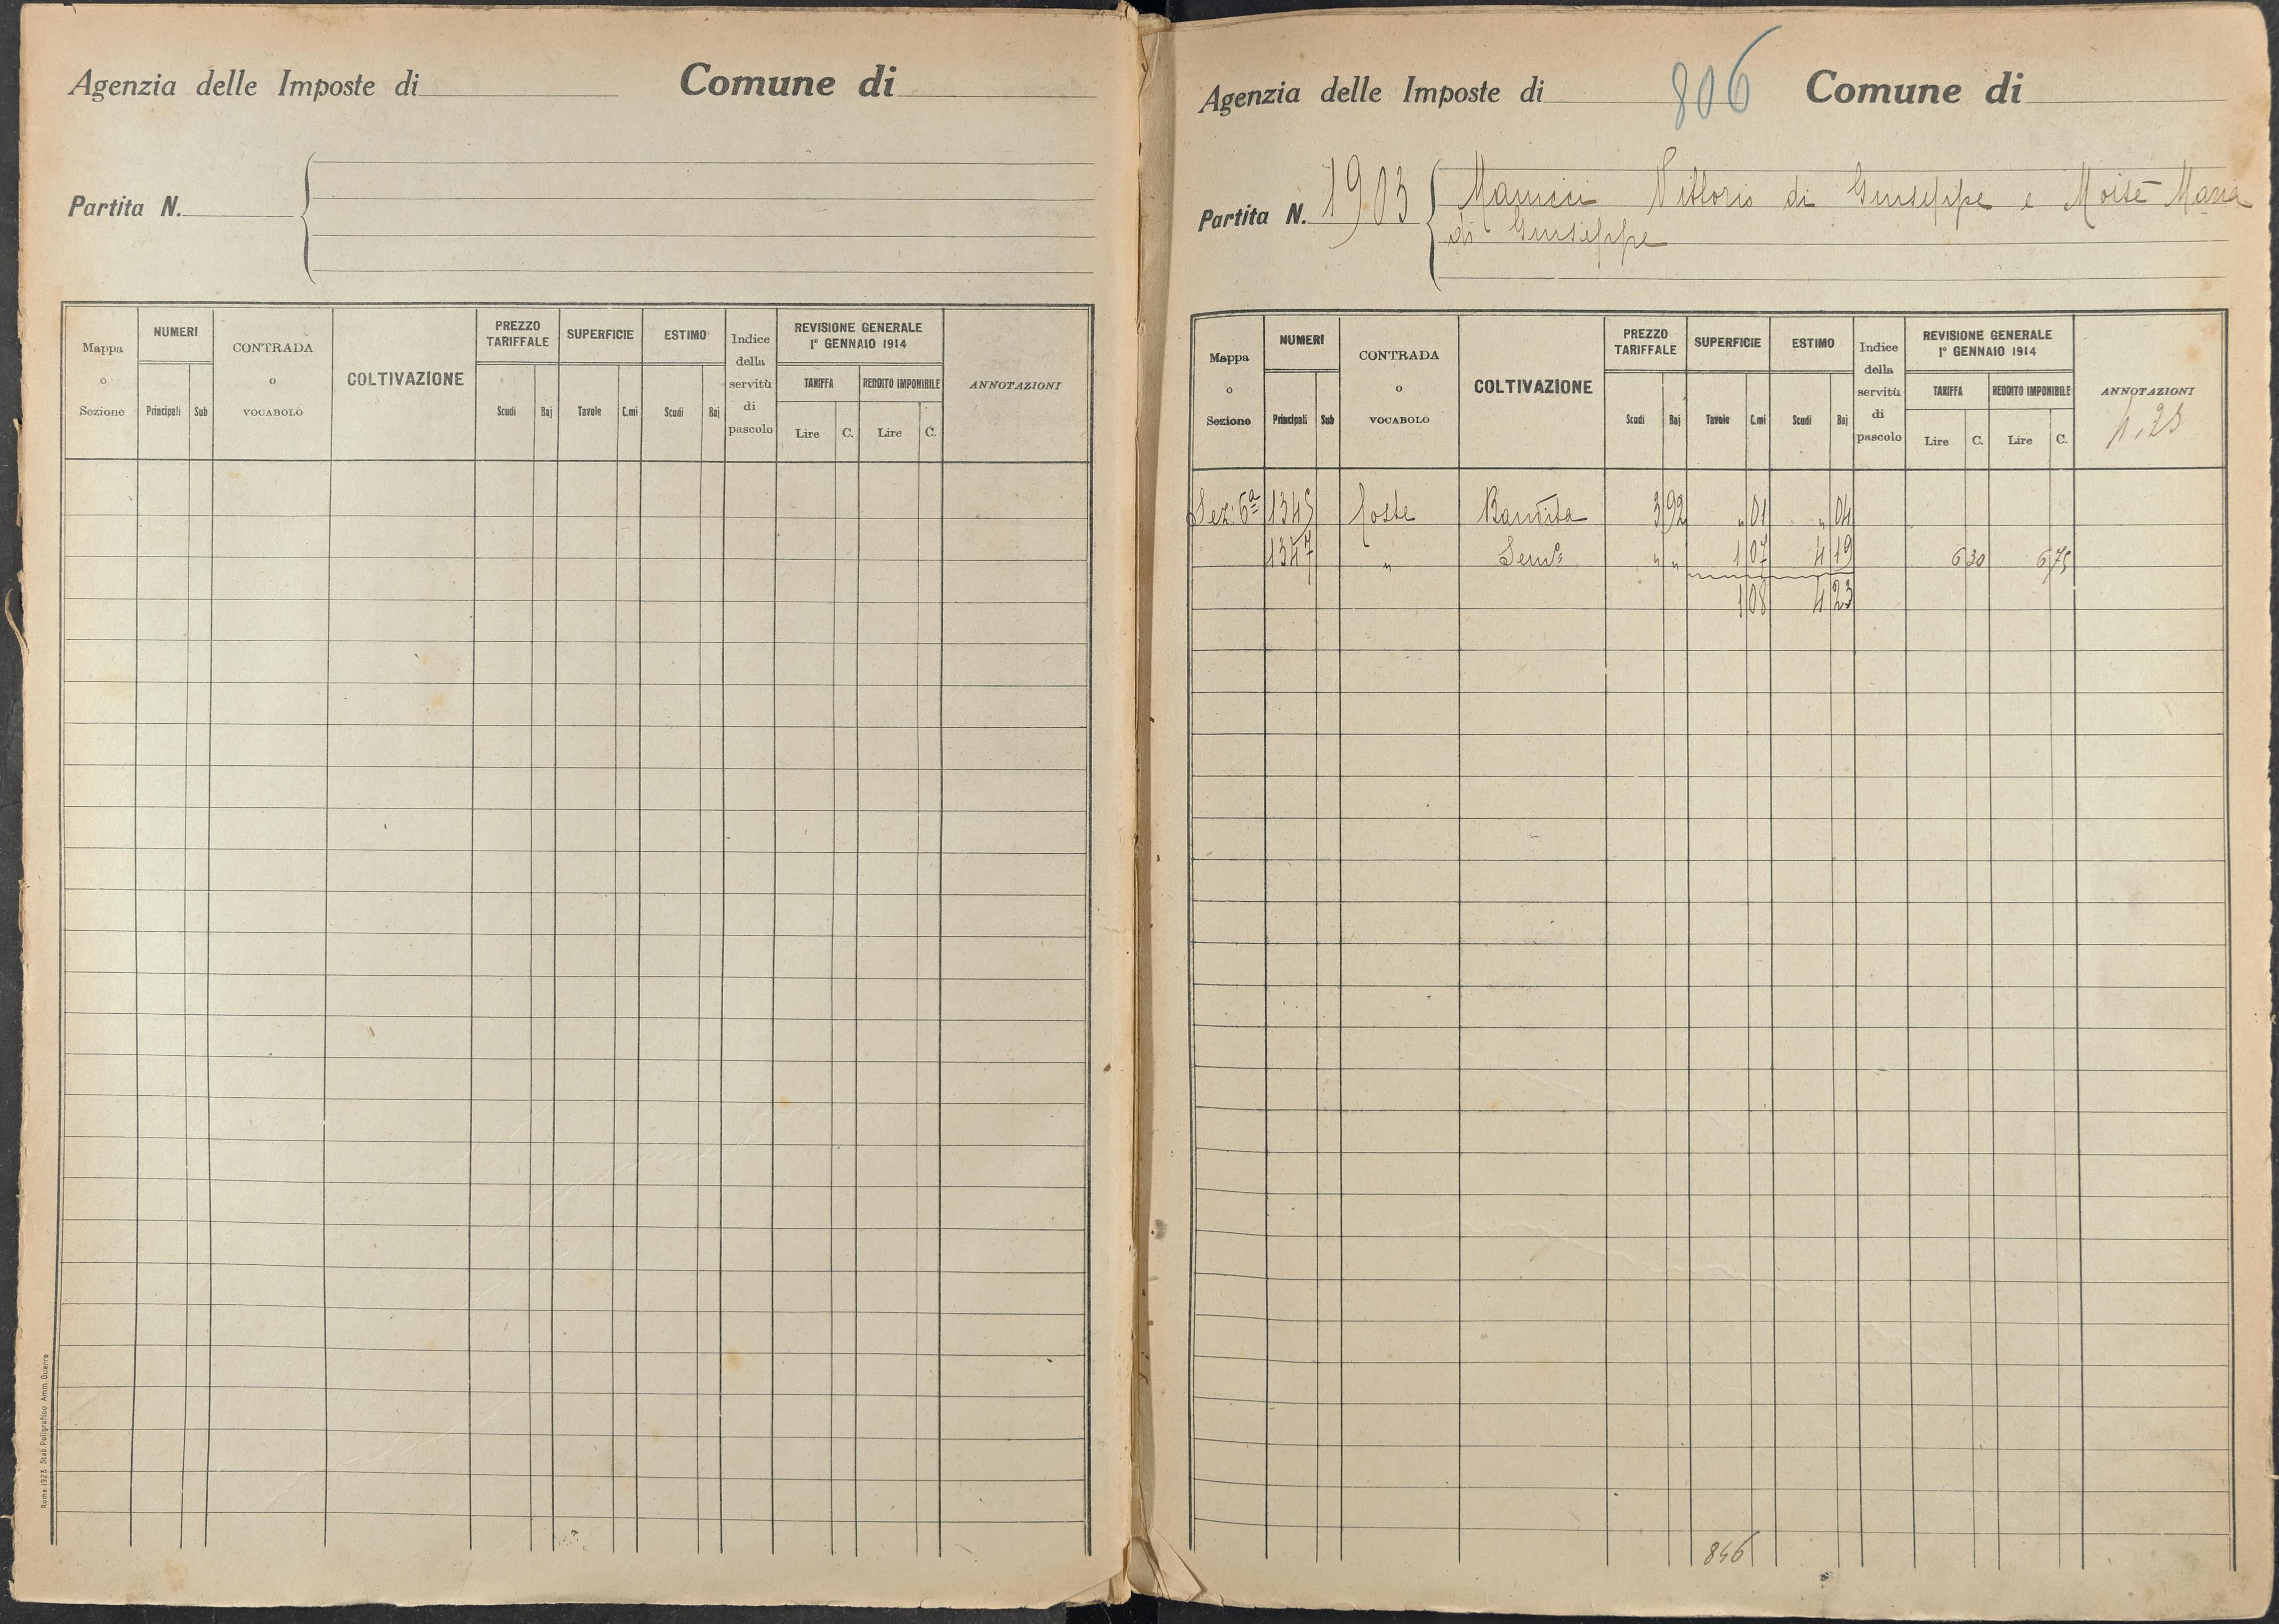 Agenzia delle Imposte di Comune di
Partita N.
Mappa o Sezione NUMERI Principali Sub CONTRADA o VOCABOLO COLTIVAZIONE PREZZO TARIFFALE Scudi Baj SUPERFICIE Tavole C.mi ESTIMO Scudi Baj Indice della servitù di pascolo REVISIONE GENERALE 1° GENNAIO 1914 TARIFFA Lire C. REDDITO IMPONIBILE Lire C. ANNOTAZIONI
Roma 1923 Stab. Poligrafico Amm. Guerra
Agenzia delle Imposte di 806 Comune di
Partita N. 1903 Vittorio di Giuseppe e Moisè Maria
di Giuseppe
Mappa o Sezione NUMERI Principali Sub CONTRADA o VOCABOLO COLTIVAZIONE PREZZO TARIFFALE Scudi Baj SUPERFICIE Tavole C.mi ESTIMO Scudi Baj Indice della servitù di pascolo REVISIONE GENERALE 1° GENNAIO 1914 TARIFFA Lire C. REDDITO IMPONIBILE Lire C. ANNOTAZIONI
Sez. 6ª 1345 Coste 3 92 " 01 " 04
1347 " Semo " " 1 07 4 19 6 30 6 75
1 08 4 23
846